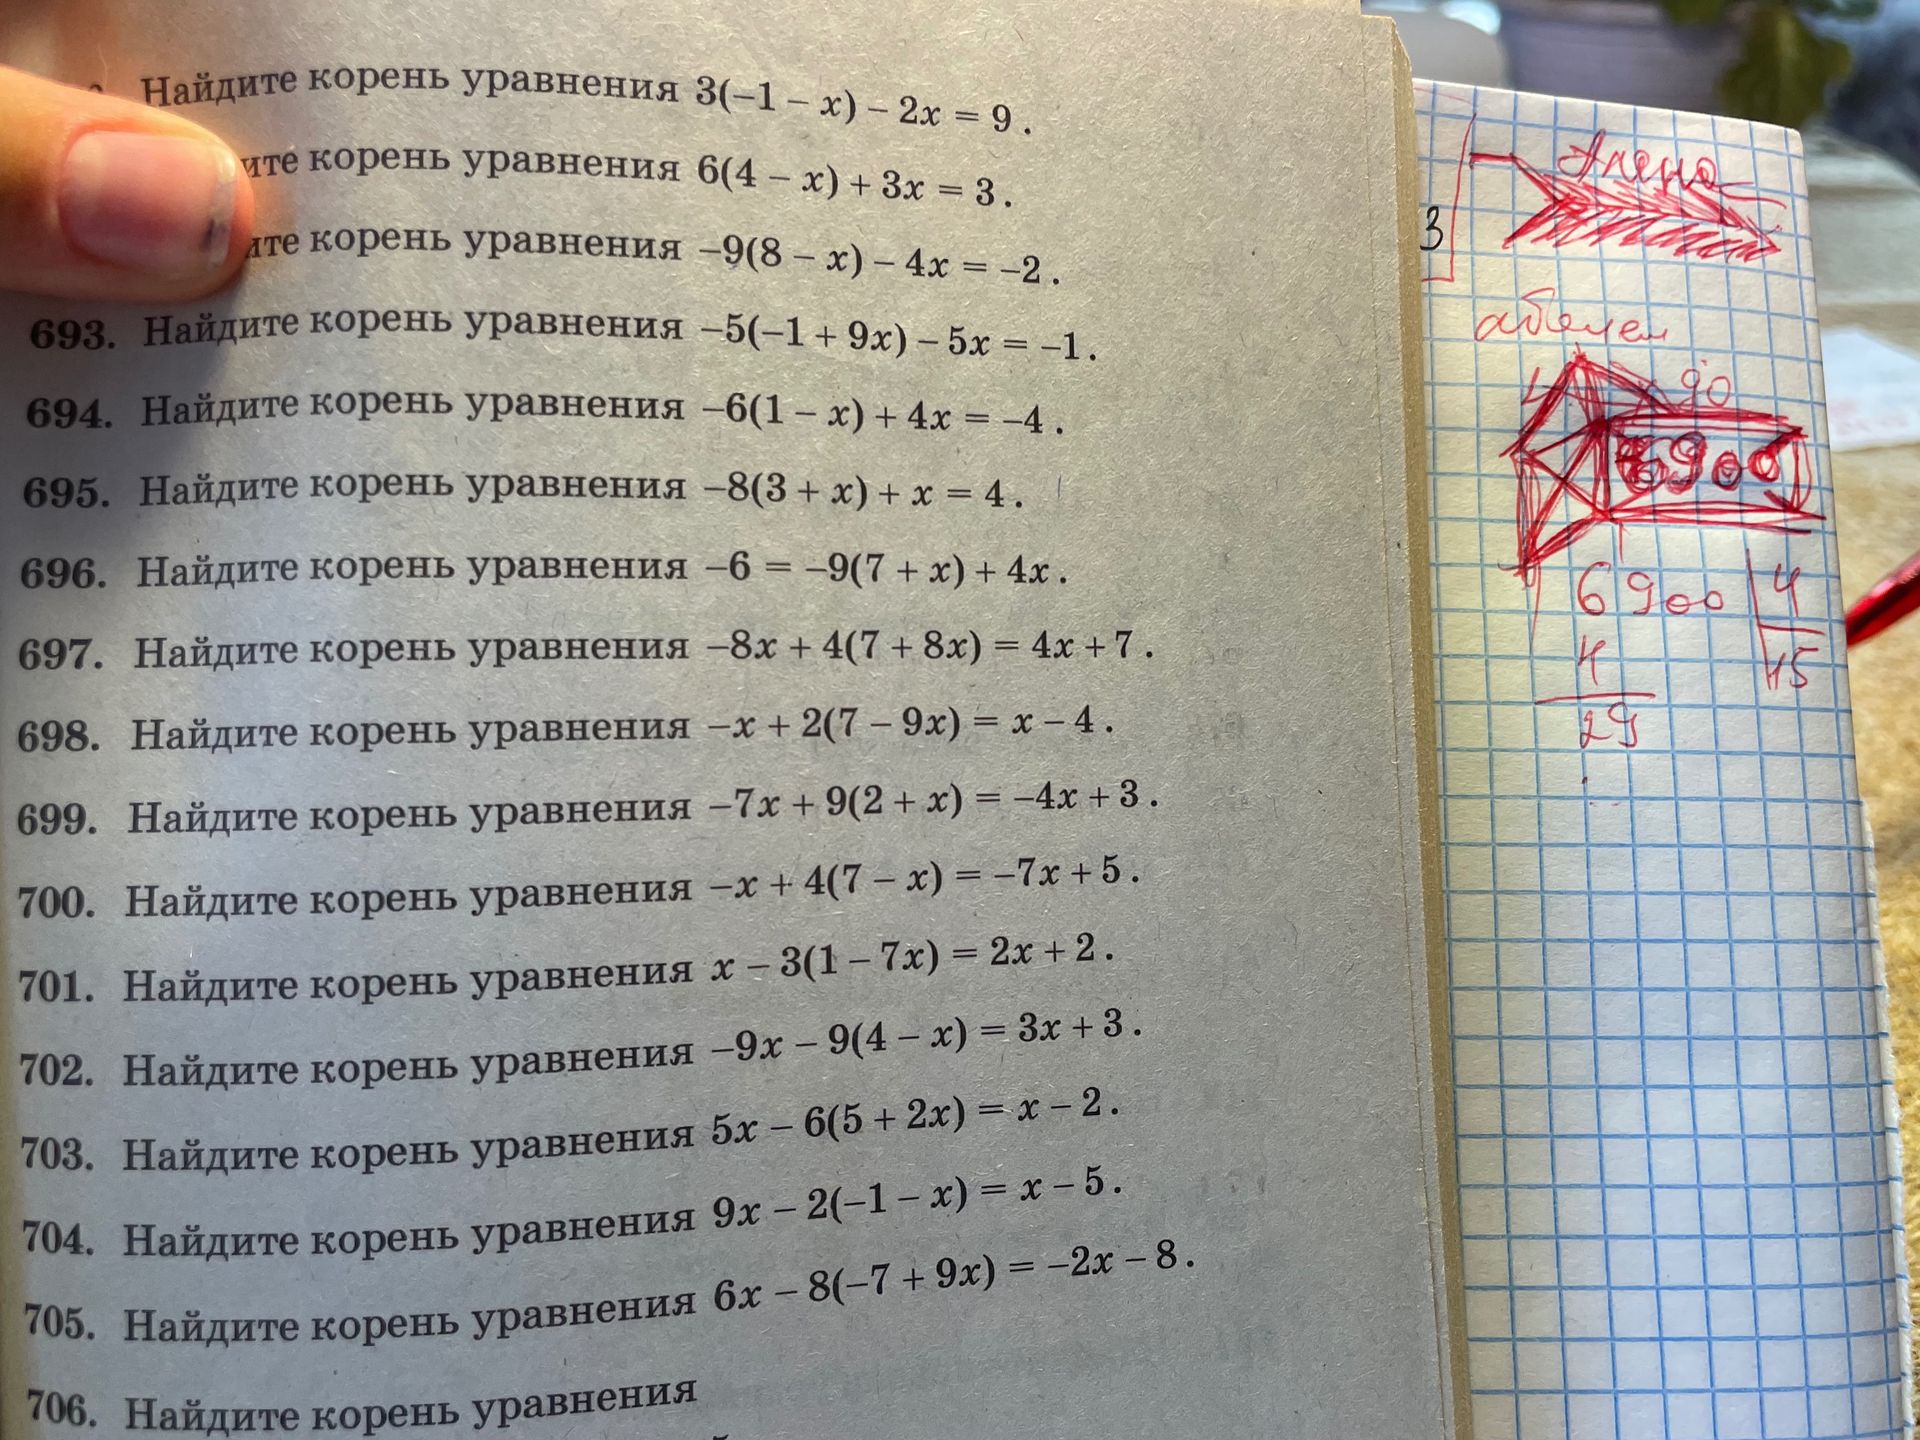 Найдите корень уравнения 3(–1 – x) – 2x = 9.
корень уравнения 6(4 – x) + 3x = 3.
корень уравнения –9(8 – x) – 4x = –2.
693. Найдите корень уравнения –5(–1 + 9x) – 5x = –1.
694. Найдите корень уравнения –6(1 – x) + 4x = –4.
695. Найдите корень уравнения –8(3 + x) + x = 4.
696. Найдите корень уравнения –6 = –9(7 + x) + 4x.
697. Найдите корень уравнения –8x + 4(7 + 8x) = 4x + 7.
698. Найдите корень уравнения –x + 2(7 – 9x) = x – 4.
699. Найдите корень уравнения –7x + 9(2 + x) = –4x + 3.
700. Найдите корень уравнения –x + 4(7 – x) = –7x + 5.
701. Найдите корень уравнения x – 3(1 – 7x) = 2x + 2.
702. Найдите корень уравнения –9x – 9(4 – x) = 3x + 3.
703. Найдите корень уравнения 5x – 6(5 + 2x) = x – 2.
704. Найдите корень уравнения 9x – 2(–1 – x) = x – 5.
705. Найдите корень уравнения 6x – 8(–7 + 9x) = –2x – 8.
706. Найдите корень уравнения
Алена
3
90
6900
6900 4
4 15
29